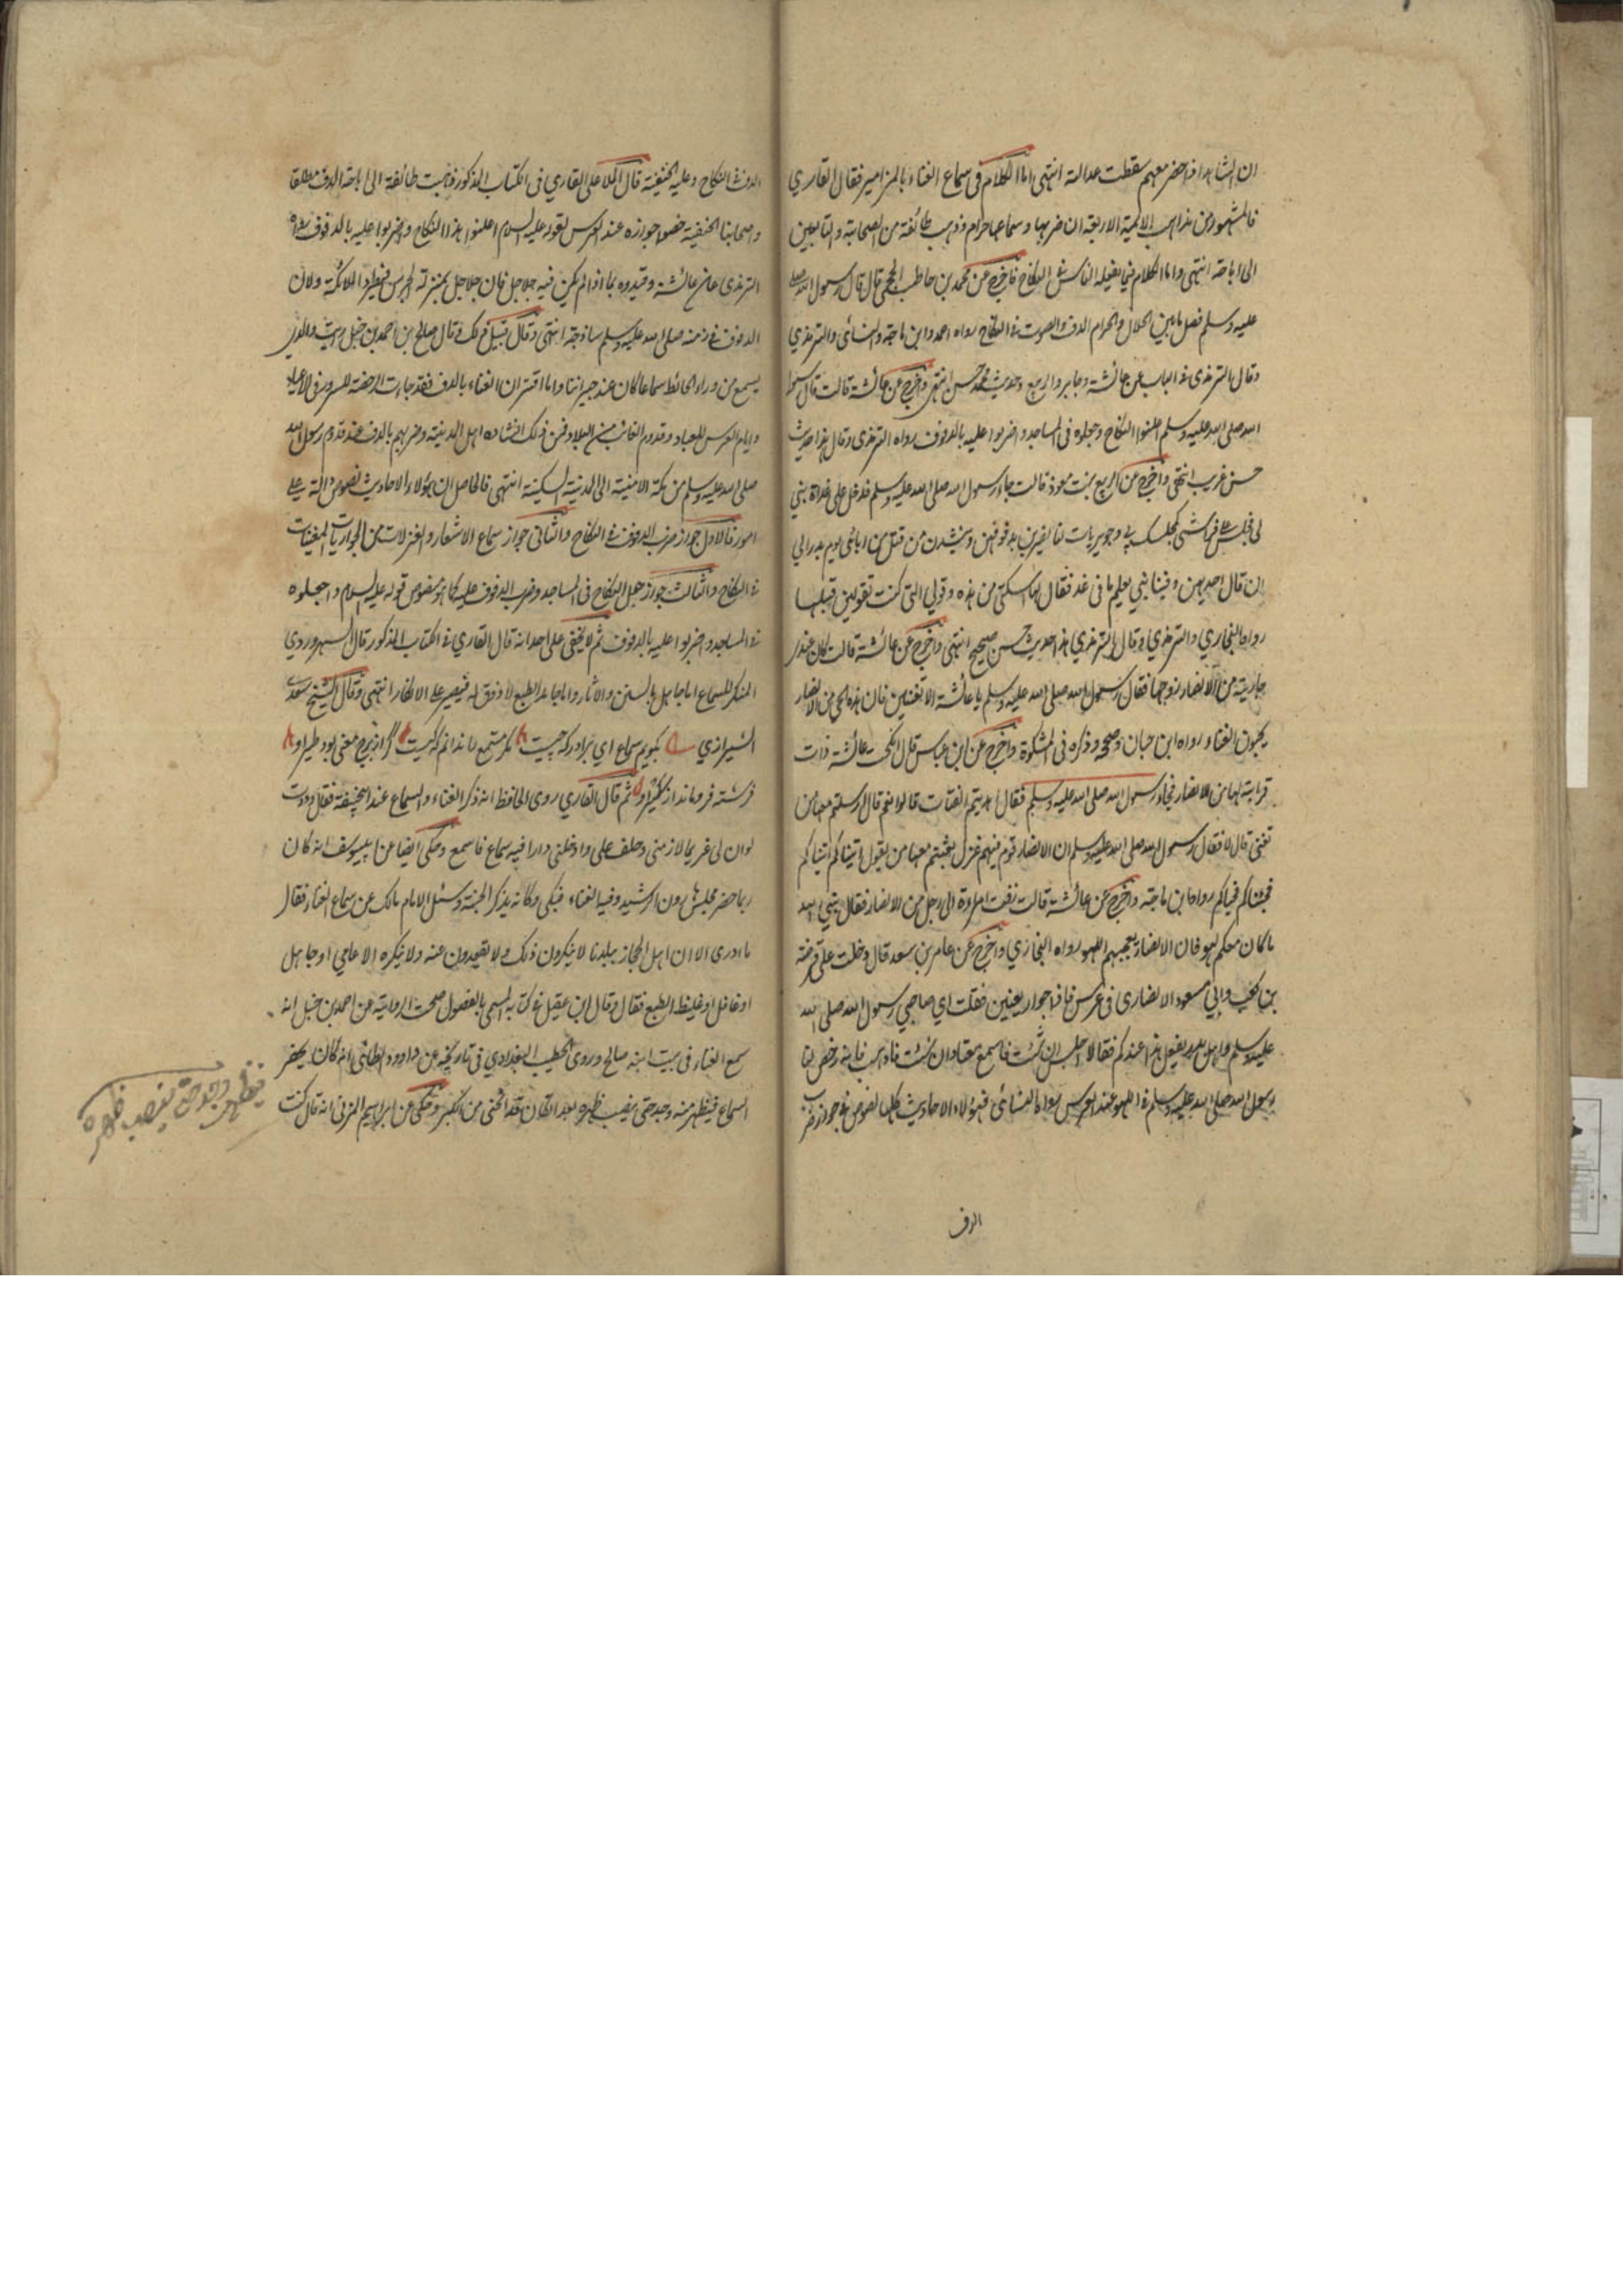 ان الشاهد اذا حضر معهم سقطت عدالته انتهى اما الكلام فى سماع الغناء بالمزامير فقال القاري
فالمشهور من مذاهب الائمة الاربعة ان ضربها وسماعها حرام وذهب طائفة من الصحابة والتابعين
الى اباحته انتهى واما الكلام فيما يفعله الناس فى النكاح فاخرج عن محمد بن حاطب الجمحى قال قال رسول الله صلى
عليه وسلم فصل ما بين الحلال والحرام الدف والصوت فى النكاح رواه احمد وابن ماجة والنسائى والترمذي
وقال الترمذى فى الباب عن عائشة وجابر والربيع وحديث محمد حسن انتهى واخرج عن عائشة قالت قال رسول
الله صلى الله عليه وسلم اعلنوا النكاح وجعلوه فى المساجد واضربوا عليه بالدفوف رواه الترمذى وقال هذا حديث
حسن غريب انتهى واخرج عن الربيع بنت معوذ قالت جاء رسول الله صلى الله عليه وسلم فدخل على غداة بنى
لى فجلس على فراشى كمجلسك منى وجويريات لنا يضربن بدفوفهن ويندبن من قتل من ابائى يوم بدر الى
ان قال احديهن وفينا نبي يعلم ما فى غد فقال لها اسكتى من هذه وقولي التى كنت تقولين قبلها
رواه البخاري والترمذي وقال الترمذي هذا حديث حسن صحيح انتهى واخرج عن عائشة قالت كان عندى
جارية من الانصار زوجها فقال رسول الله صلى الله عليه وسلم يا عائشة الا تغنين فان هذه الحى من الانصار
يحبون الغناء رواه ابن حبان وصححه وذكره فى المشكوة واخرج عن ابن عباس قال انكحت عائشة ذات
قرابة لها من الانصار فجاء رسول الله صلى الله عليه وسلم فقال اهديتم الفتات قالوا نعم قال ارسلتم معها من
تغنى قال لا فقال رسول الله صلى الله عليه وسلم ان الانصار قوم فيهم غزل بعثتم معها من يقول اتيناكم اتيناكم
فحيانا كم فحياكم رواه ابن ماجة واخرج عن عائشة قالت زفت امراة الى رجل من الانصار فقال نبي الله
ما كان معكم لهو فان الانصار يعجبهم اللهو رواه البخاري واخرج عن عامر بن سعد قال دخلت على قرظة
بن كعب وابي مسعود الانصارى فى عرس فاذا جوار يغنين فقلت اي صاحبي رسول الله صلى الله
عليه وسلم واهل بدر يفعل هذا عندكم فقالا اجلس ان شئت فاسمع معنا وان شئت فاذهب فانه رخص لنا
رسول الله صلى الله عليه وسلم فى اللهو عند العرس رواه النسائى فهؤلاء الاحاديث كلها نصوص فى جواز ضرب
الدف
الدف فى النكاح وعليه الحنفية قال الملا على القاري فى الكتاب المذكور ذهبت طائفة الى اباحة الدف مطلقا
واصحابنا الحنفية خصوا جوازه عند العرس لقوله عليه السلام اعلنوا هذا النكاح واضربوا عليه بالدفوف رواه
الترمذى عن عائشة وقيدوه بما اذا لم يكن فيه جلاجل فان جلاجل بمنزلة الجرس فيطرد الملائكة ولان
الدفوف فى زمنه صلى الله عليه وسلم ساذجة انتهى وقال قبيل ذلك وقال صالح بن احمد بن حنبل رايت والدي
يسمع من وراء الحائط سماعا كان عند جيراننا واما اقتران الغناء بالدف فقد جاءت الرخصة للسرور فى الاعياد
وايام العرس للعباد وقدوم الغائب من البلاد فمن ذلك انشاده اهل المدينة وضربهم بالدف عند قدوم رسول الله
صلى الله عليه وسلم من مكة الامينة الى المدينة السكينة انتهى فالحاصل ان هؤلاء الاحاديث نصوص دالة على
امور فالاول جواز ضرب الدفوف فى النكاح والثانى جواز سماع الاشعار والغزلات من الجواريات المغنيات
فى النكاح والثالث جواز جعل النكاح فى المساجد وضرب الدفوف عليه كما هو منصوص قوله عليه السلام واجعلوه
فى المساجد واضربوا عليه بالدفوف ثم لا يخفى على احد انه قال القاري فى الكتاب المذكور قال السهروردي
المنكر للسماع اما جاهل بالسنن والاثار واما جامد الطبع لا ذوق له فيصير على الانكار انتهى وقال الشيخ سعدى
الشيرازي نگويم سماع اي برادر كه چيست مگر مستمع را ندانم كه كيست گر از برج معنى بود طير او
فرشته فرو ماند از سير او ثم قال القاري روى الحافظ انه ذكر الغناء والسماع عند ابيحنيفة فقال وددت
لو ان لى غريما لازمنى وحلف على وادخلنى دارا فيه سماع فاسمع وحكى ايضا عن ابيوسف انه كان
ربما حضر مجلس هارون الرشيد وفيه الغناء فبكى وكانه يذكر الجنة وسئل الامام مالك عن سماع الغناء فقال
ما ادرى الا ان اهل الحجاز ببلدنا لا ينكرون ذلك ولا يقعدون عنه ولا ينكره الا عامي او جاهل
او غافل او غليظ الطبع فقال وقال ابن عقيل فى كتابه المسمى بالفصول صحت الرواية عن احمد بن حنبل انه
سمع الغناء فى بيت ابنه صالح وروى الخطيب البغدادي فى تاريخه عن داوود الطائى انه كان يحضر
السماع فيظهر منه وجد حتى ينصب ظهره بعد ان كان قد انحنى من الكبر وحكى عن ابراهيم المزنى انه قال كنت
ينصب ظهره